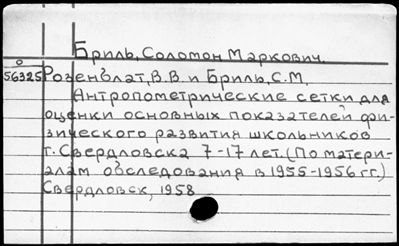 Бриль, Соломон Маркович.
о
56325 Розенблат, В.В. и Бриль, С.М.
Антропометрические сетки для
оценки основных показателей фи-
зического развития школьников
г. Свердловска 7-17 лет. (По матери-
алам обследования в 1955-1956 гг.)
Свердловск, 1958